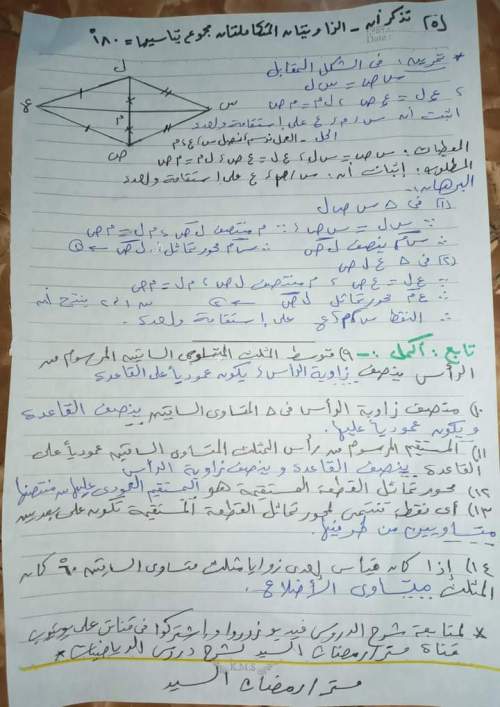 (٥) تذكر أن - الزاويتان المتكاملتان مجموع قياسيهما = ١٨٠°
* تمرين: فى الشكل المقابل
س ص = س ل
، ع ل = ع ص ، ل م = م ص
اثبت أن س ، م ، ع على إستقامة واحدة
الحل - العمل نرسم
المعطيات: س ص = س ل ، ع ل = ع ص ، ل م = م ص
المطلوب: إثبات أن: س ، م ، ع على إستقامة واحدة
البرهان:
(١) فى △ س ص ل
∵ س ل = س ص ، ∵ م منتصف ل ص ، م ل = م ص
∴ س م ينصف ل ص ∴ س م محور تماثل ل ص ← ①
(٢) فى △ ع ل ص
∵ ع ل = ع ص ، م منتصف ل ص ، م ل = م ص
∴ ع م محور تماثل ل ص ← ② من ١ ، ٢ ينتج أن
∴ النقط س ، م ، ع على إستقامة واحدة.
تابع: أكمل :- ٩) متوسط المثلث المتساوى الساقين المرسوم من
الرأس ينصف زاوية الرأس ، يكون عمودياً على القاعدة
١٠) منصف زاوية الرأس فى △ المتساوى الساقين ينصف القاعدة
و يكون عمودياً عليها.
١١) المستقيم المرسوم من رأس المثلث المتساوى الساقين عمودياً على
القاعدة ينصف القاعدة و ينصف زاوية الرأس
١٢) محور تماثل القطعة المستقيمة هو المستقيم العمودى عليها من منتصفها
١٣) أى نقطة تنتمى لمحور تماثل القطعة المستقيمة تكون على بعدين
متساويين من طرفيها.
١٤) إذا كان قياس إحدى زوايا مثلث متساوى الساقين ٦٠° كان
المثلث متساوى الأضلاع.
* لمتابعة شرح الدروس فيديو زوروا و اشتركوا فى قناتى على يوتيوب
قناة مستر رمضان السيد لشرح دروس الرياضيات *
K.M.S
مستر رمضان السيد
ل
ع
م
س
ص